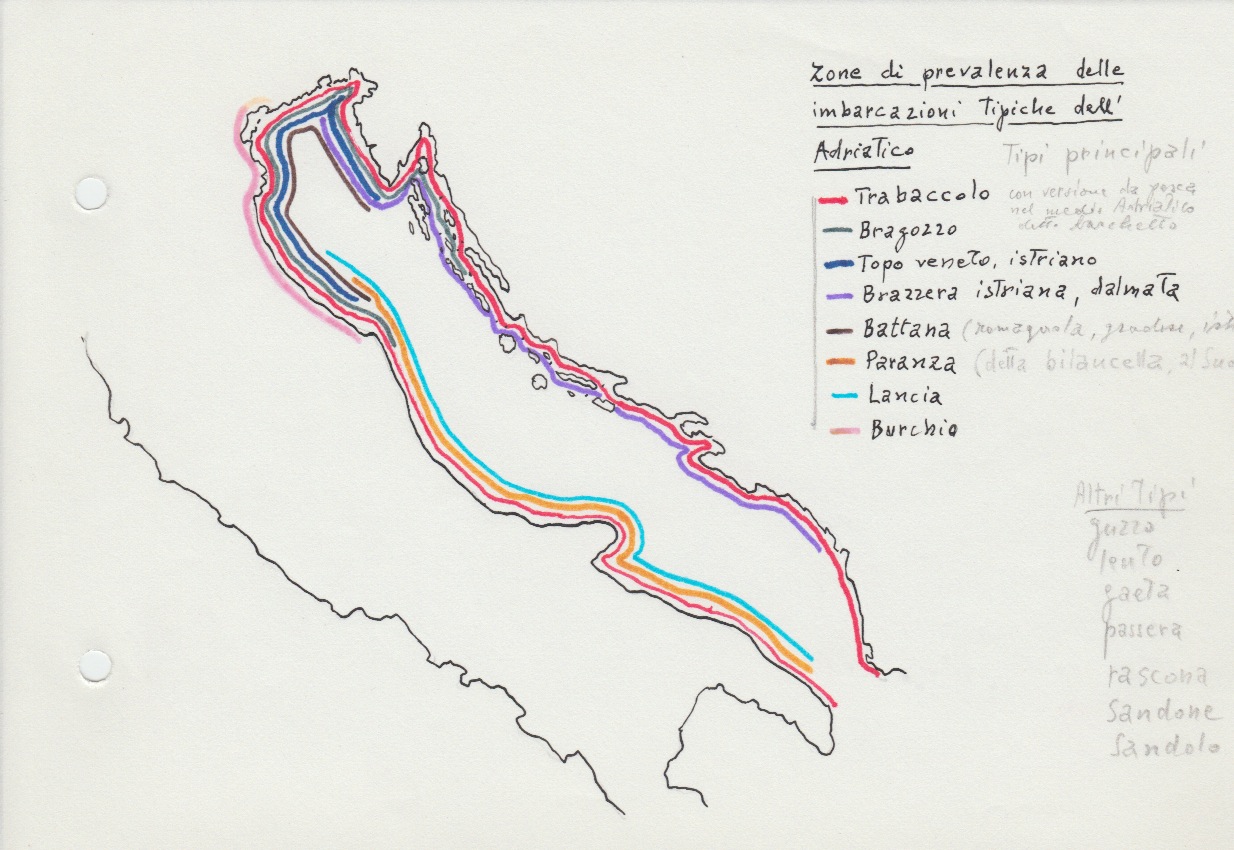 Zone di prevalenza delle
imbarcazioni Tipiche dell'
Adriatico
Tipi principali
Trabaccolo
con versione da pesca
nel medio Adriatico
detta barchetto
Bragozzo
Topo veneto, istriano
Brazzera istriana, dalmata
Battana (romagnola, gradese,
Paranza (detta bilancella, al Sud
Lancia
Burchio
Altri Tipi
guzzo
leuto
gaeta
passera
rascona
Sandone
Sandolo